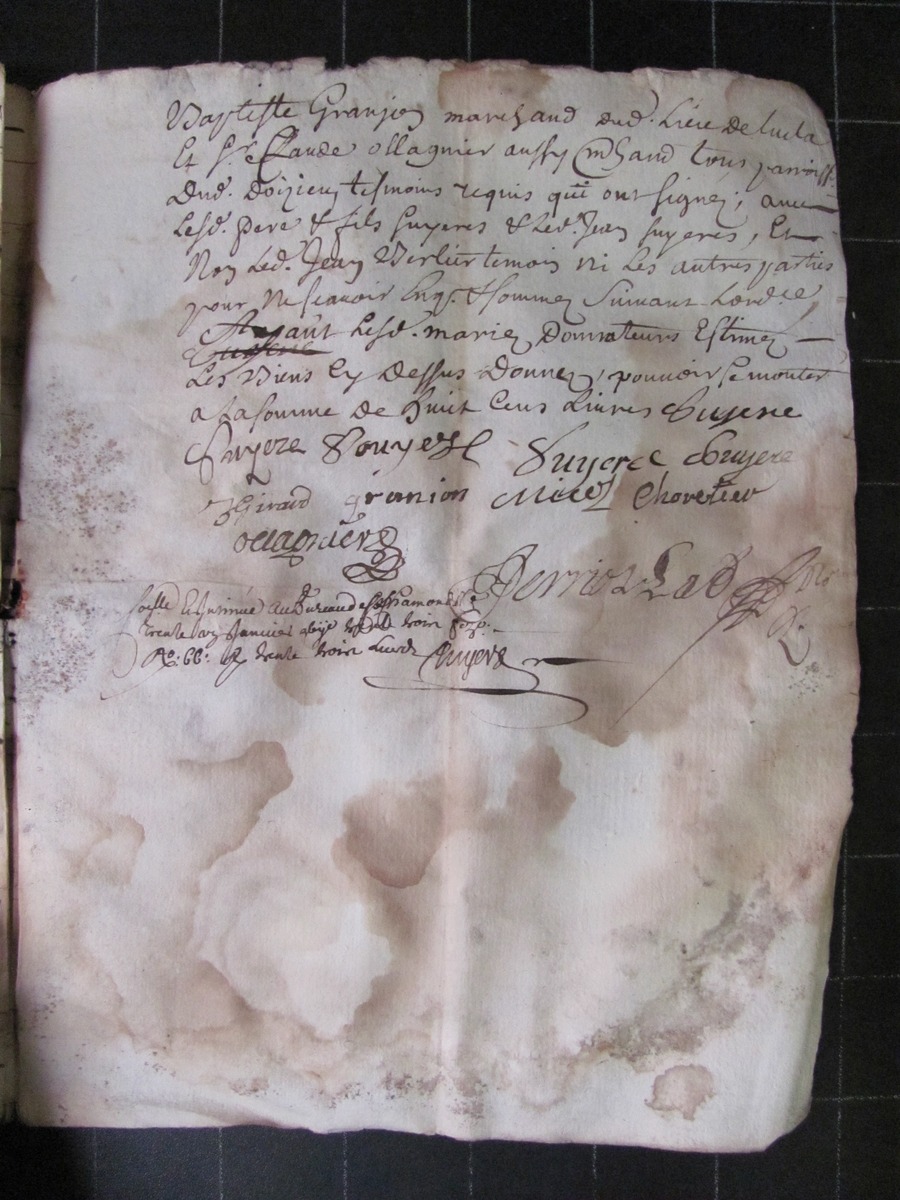 Baptiste Granjon marchand dud. Lieu de Lucla
Et Sr. Claude ollagnier aussy mhand tous parroisse
Dud. Doizieu tesmoins requis qui ont signez, avec
Lesd. pere & fils Suyeres & Led. Jean Suyeres, Et
Non Led. Jean Verlier temoin ni Les autres parties
pour Ne scavoir Enqs. & sommez suivant Lord.ce
Ayant Lesd. mariez Donnateurs Estimez
Les Biens Cy Dessus Donnez, pouvoir se monter
a La somme de huit Cens Livres Suyere
Suyere Suyere Suyere
Girard granion Chovetier
ollagniere
Perriolat
Controllé Et Insinué au Bureau de St Chamond Le
trente Janvier
trente trois
Suyere